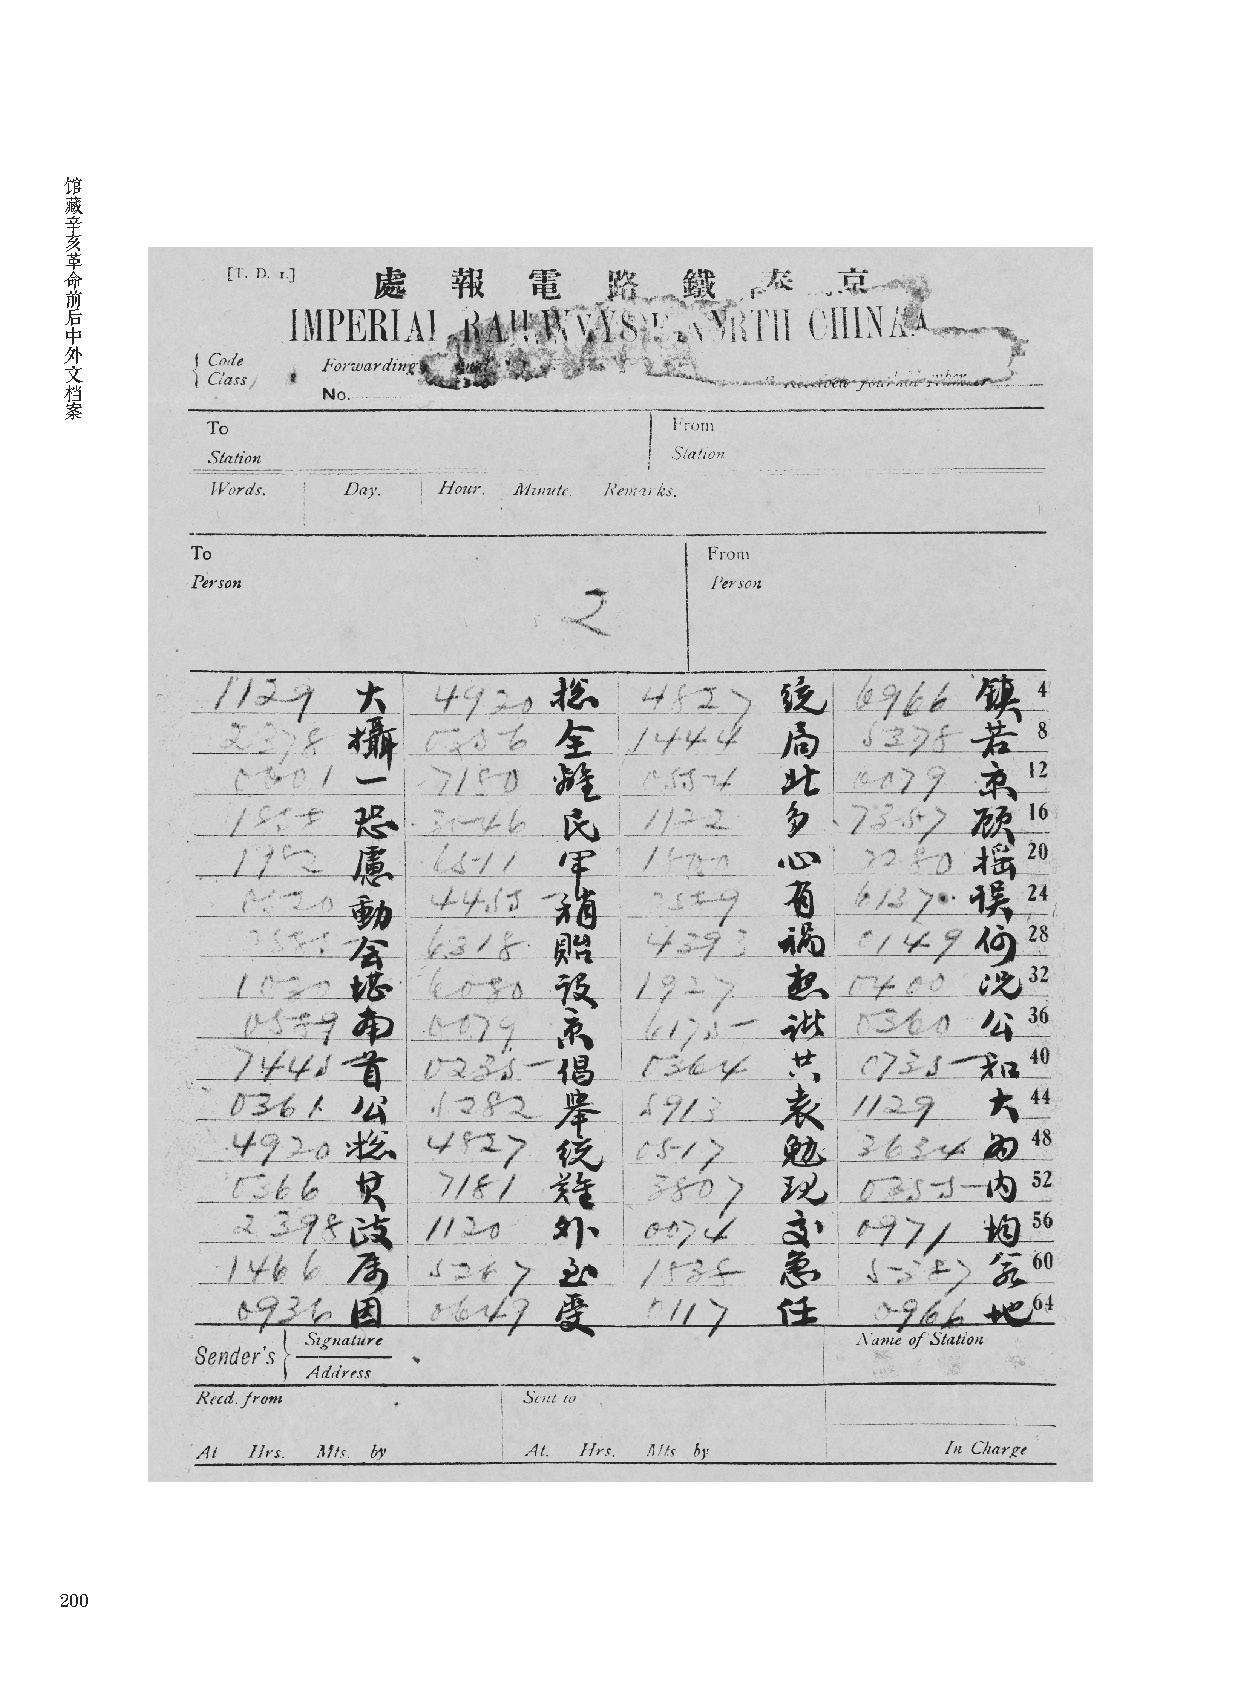 馆藏辛亥革命前后中外文档案
[T. D. 1.]
處 報 電 路 鐵 奉 京
IMPERIAL RAILWAYS NORTH CHINA
Code
Class
Forwarding
No.
To
Station
From
Station
Words. Day. Hour. Minute. Remarks.
To
Person
From
Person
2
1129 大 4920 總 4827 统 6966 鎮 4
2378 攝 0356 全 1444 局 5378 若 8
0001 一 7180 離 0554 北 0079 京 12
1858 恐 3046 民 1122 多 7357 顧 16
1982 慮 6511 軍 1800 心 2280 摇 20
0520 動 4455 稍 2589 有 6137 误 24
2585 会 6318 貽 4393 禍 0149 何 28
1030 堪 6080 設 1927 想 0400 况 32
0589 南 0079 京 6175 諧 0360 公 36
7445 首 0235 倡 0364 共 0735 和 40
0361 公 5282 舉 5913 袁 1129 大 44
4920 總 4827 统 0517 勉 3634 為 48
0366 其 7181 難 3807 现 0355 内 52
2398 政 1120 外 0074 交 0971 均 56
1466 属 5267 至 1838 急 5387 万 60
0936 因 0649 受 0117 任 0966 地 64
Sender's
Signature
Address
Name of Station
Recd. from Sent to
At Hrs. Mts. by At. Hrs. Mts by In Charge
200